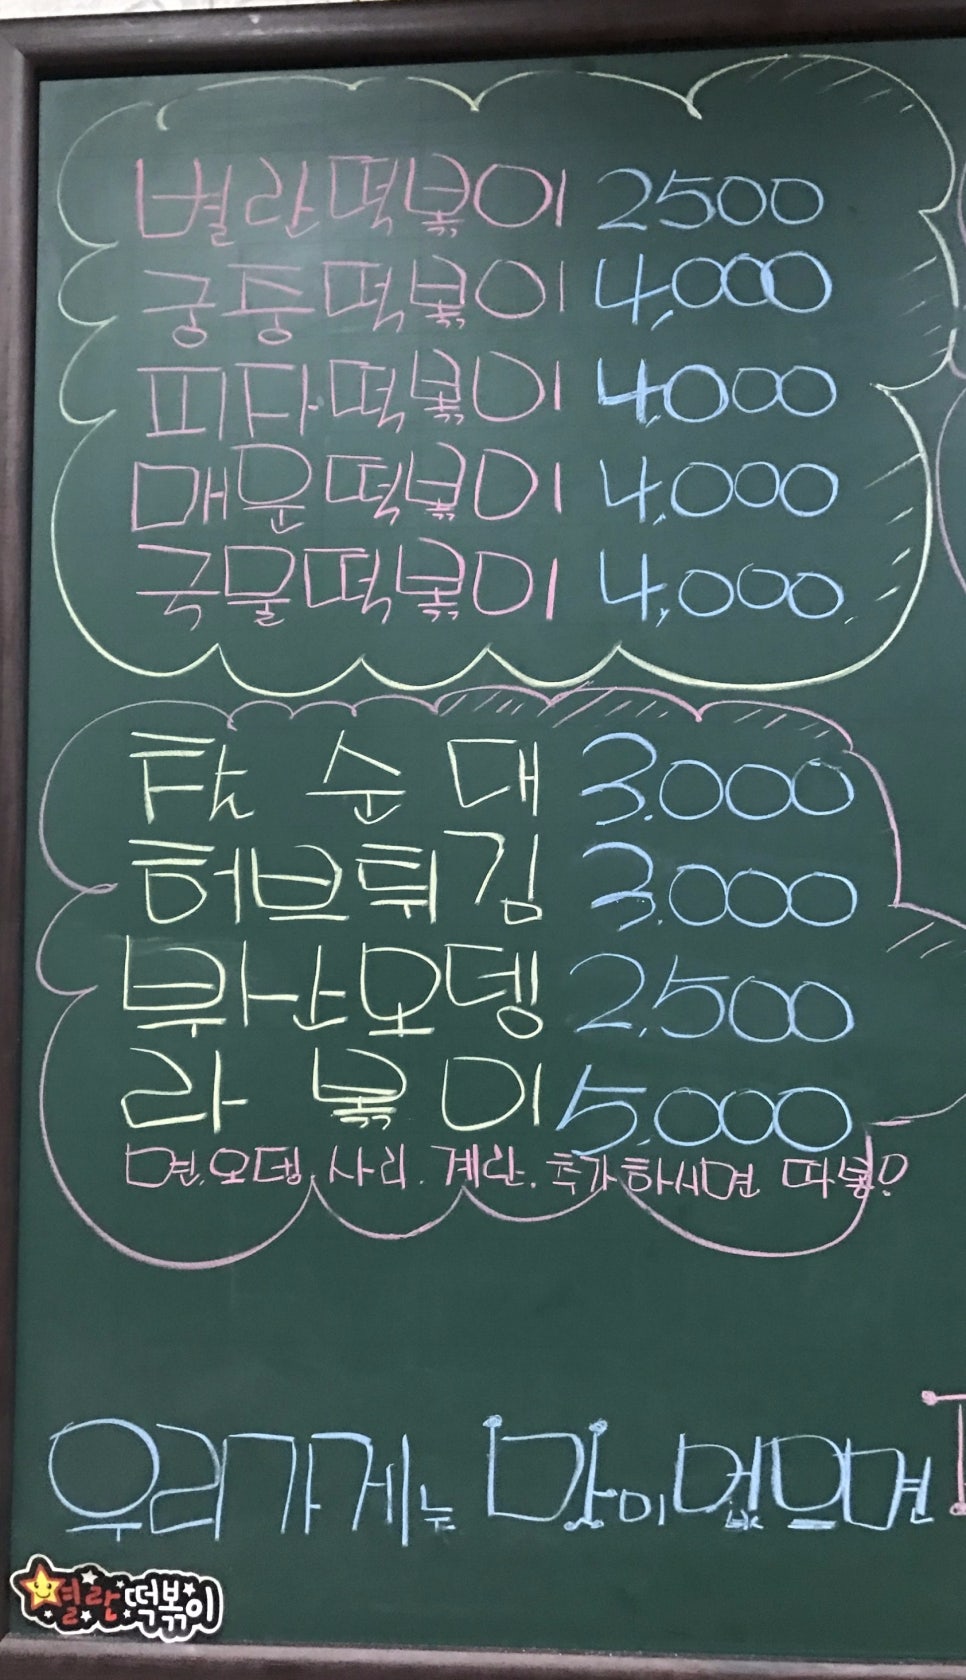 별란떡볶이 2500
궁중떡볶이 4,000
피자떡볶이 4,000
매운떡볶이 4,000
국물떡볶이 4,000
찰순대 3.000
허브튀김 3.000
부산오뎅 2,500
라볶이 5.000
면.오뎅.사리.계란.추가하시면
우리가게는 맛이없으면
별란떡볶이